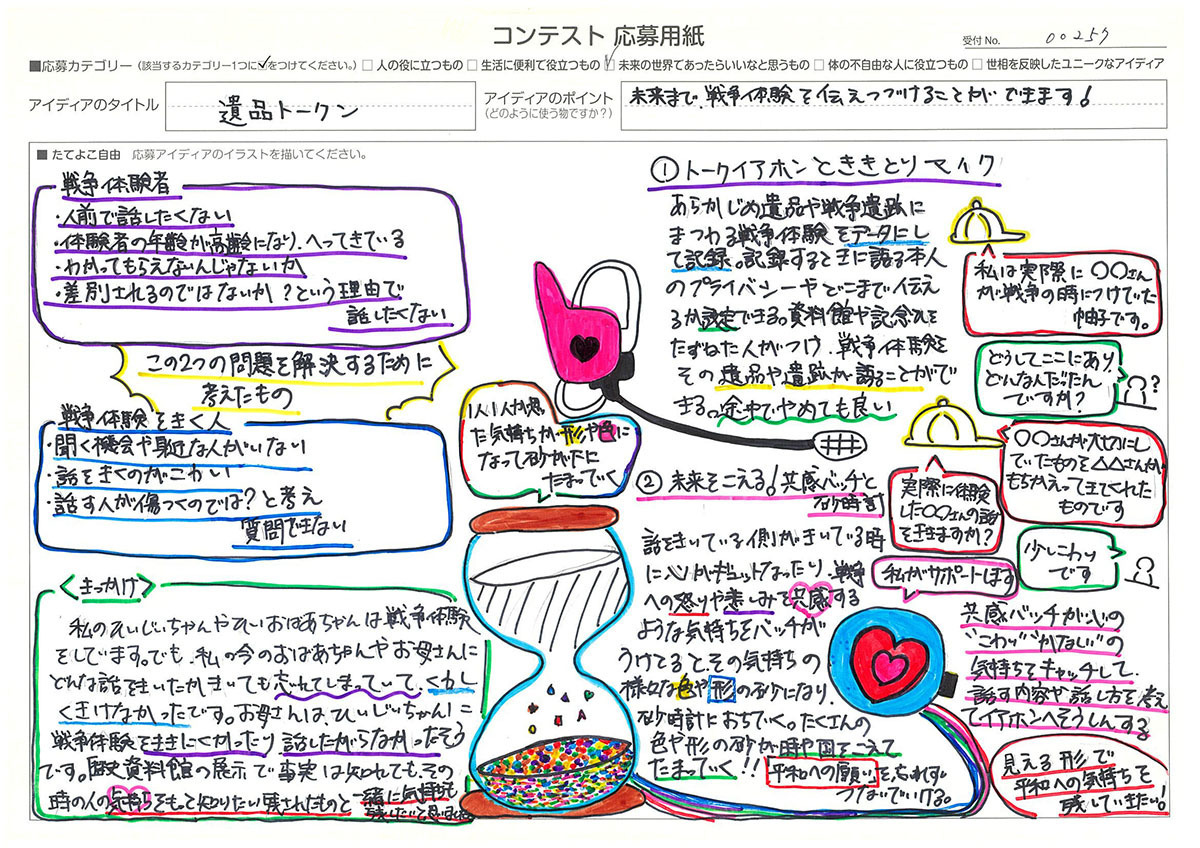 コンテスト 応募用紙
受付 No. 00257
■応募カテゴリー（該当するカテゴリー1つに✓をつけてください。）□ 人の役に立つもの □ 生活に便利で役立つもの ☑ 未来の世界であったらいいなと思うもの □ 体の不自由な人に役立つもの □ 世相を反映したユニークなアイディア
アイディアのタイトル
遺品トークン
アイディアのポイント
（どのように使う物ですか？）
未来まで、戦争体験を伝えつづけることができます！
■ たてよこ自由 応募アイディアのイラストを描いてください。
戦争体験者
・人前で話したくない
・体験者の年齢が高齢になり、へってきている
・わかってもらえないんじゃないか
・差別されるのではないか？という理由で
話したくない
この2つの問題を解決するために
考えたもの
戦争体験をきく人
・聞く機会や身近な人がいない
・話をきくのがこわい
・話す人が傷つくのでは？と考え
質問できない
<きっかけ>
私のひいじいちゃんやひいおばあちゃんは戦争体験
をしています。でも、私の今のおばあちゃんやお母さんに
どんな話をきいたかきいても忘れてしまっていて、くわし
くきけなかったです。お母さんは、ひいじいちゃんに
戦争体験をききにくかったり話したがらなかったそう
です。歴史資料館の展示で事実は知れても、その
時の人の気持ちをもって知りたい残されたものと一緒に気持ちも
残したいと思いました
一人一人が思っ
た気持ちが形や色に
なって砂がたに
たまっていく
① トークイアホンとききとりマイク
あらかじめ遺品や戦争遺跡に
まつわる戦争体験をデータにし
て記録。記録するときに語る本人
のプライバシーやどこまで伝え
るか設定できる。資料館や記念ひを
たずねた人がつけ、戦争体験を
その遺品や遺跡が語ることがで
きる。途中でやめても良い
私は実際に〇〇さん
が戦争の時につけていた
帽子です。
どうしてここにあり、
どんな人だったん
ですか？
?
〇〇さんが大切にし
ていたものを△△さんが
もちかえってきてくれた
ものです
実際に体験
した〇〇さんの話
をききますか？
少しこわい
です
私がサポートします
② 未来をこえる！共感バッチと
砂時計
話をきいている側がきいている時
に心がギュッとなったり、戦争
への怒りや悲しみを共感する
ような気持ちをバッチが
うけとると、その気持ちの
様々な色や形の砂になり、
砂時計におちていく。たくさんの
色や形の砂が時や国をこえて
たまっていく!!
平和への願いをわすれず
つないでいける。
共感バッチが心の
“こわい”“かなしい”の
気持ちをキャッチして、
話す内容や話し方を考え
てイアホンへそうしんする
見える形で
平和への気持ちを
残していきたい！